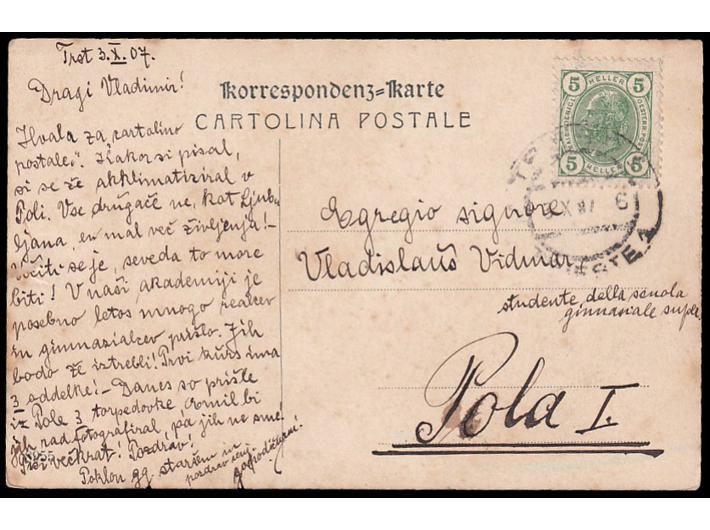 Trst 3.X.07.
Dragi Vladimir!
Hvala za cartolino
postale". Kakor si pisal,
si se že akklimatiziral v
Poli. Vse drugače ne, kot Ljub-
ljana, en mal več življenja!-
se je, seveda to more
biti! V naši akademiji je
posebno letos mnogo realcev
in gimnazialcev prišlo. Jih
bodo že iztrebili! Prvi kurs ima
3 oddelke!- Danes so prišle
iz Pole 3 torpedovke, bi
jih rad fotografiral, pa jih ne sme!
Piši večkrat! Pozdrav!
Poklon gg. starišem in
pozdrav
gospodični!
8955
Korrespondenz=Karte
CARTOLINA POSTALE
5 HELLER 5
5 HELLER 5
TRIESTE 1
Egregio signore
Vladislavš Vidmar
studente della scuola
ginnasiale super.
Pola I.